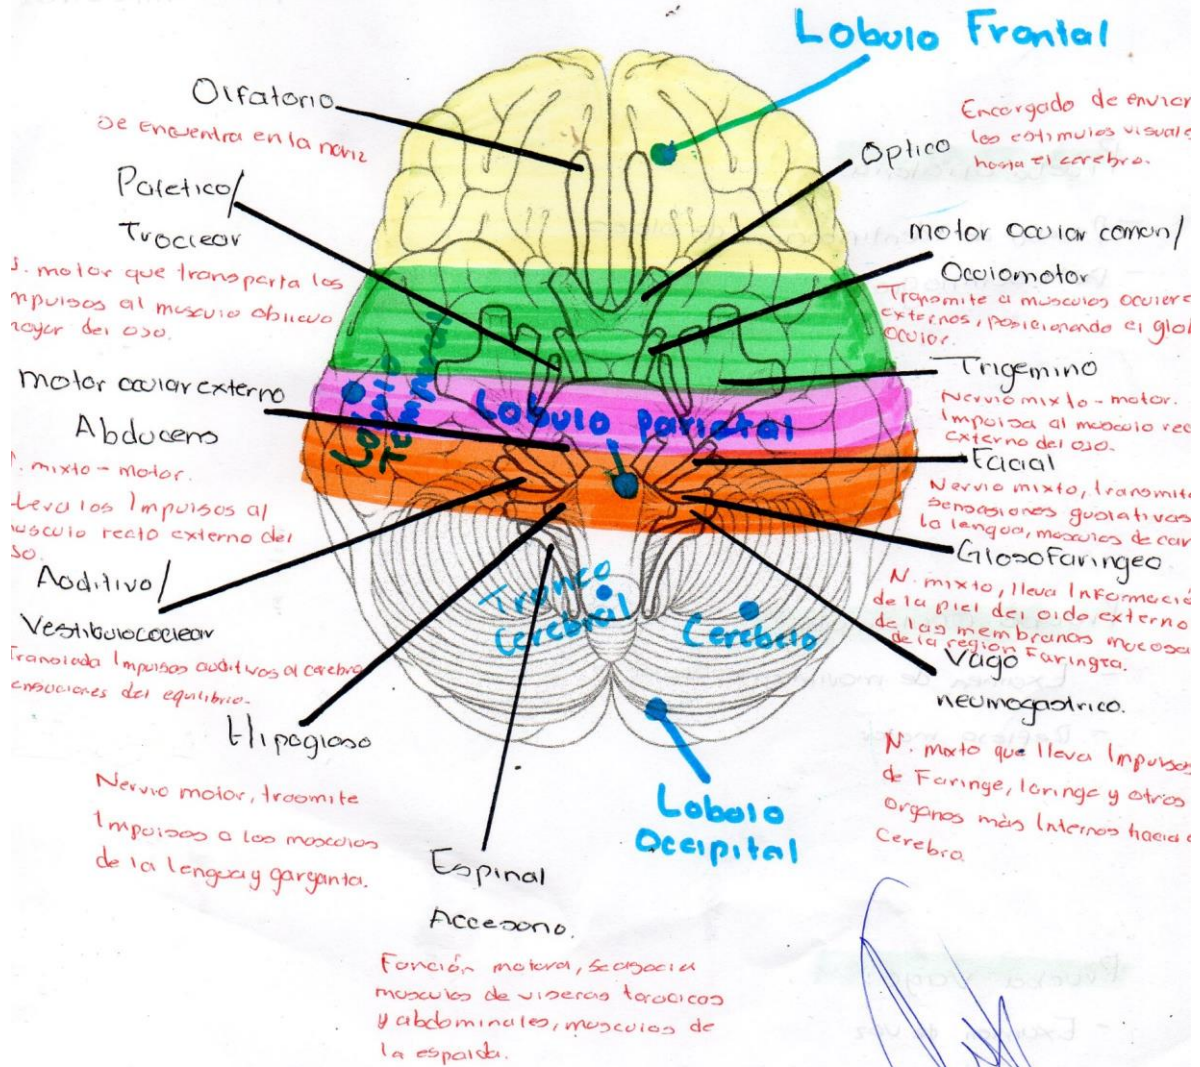 Lobulo Frontal
Olfatorio
se encuentra en la nariz
Patetico/
Troclear
motor que transporta los
impulsos al musculo oblicuo
mayor del ojo.
motor ocular externo
Abducens
mixto - motor.
Lleva los Impulsos al
musculo recto externo del
ojo.
Auditivo/
Vestibulococlear
Translada Impulsos auditivos al cerebro
sensaciones del equilibrio.
Hipogloso
Nervio motor, trasmite
Impulsos a los musculos
de la lengua y garganta.
Espinal
Accesorio.
Función motora, se asocia
musculos de viseras toracicas
y abdominales, musculos de
la espalda.
Optico
Encargado de enviar
los estimulos visuales
hasta el cerebro.
motor ocular comun/
Oculomotor
Transmite a musculos oculares
externos, posicionando el glob
ocular.
Trigemino
Nervio mixto - motor.
Impulsa al musculo rec
externo del ojo.
Facial
Nervio mixto, transmite
sensasiones gustativas
la lengua, musculos de car
Glosofaringeo
N. mixto, lleva Informació
de la piel del oido externo
de las membranas mucosa
de la region Faringea.
Vago
neumogastrico.
N. mixto que lleva Impulsos
de Faringe, laringe y otros
organos más Internos hacia
Cerebro.
Lobulo
Temporal
Lobulo parietal
Tronco
Cerebral
Cerebelo
Lobulo
Occipital